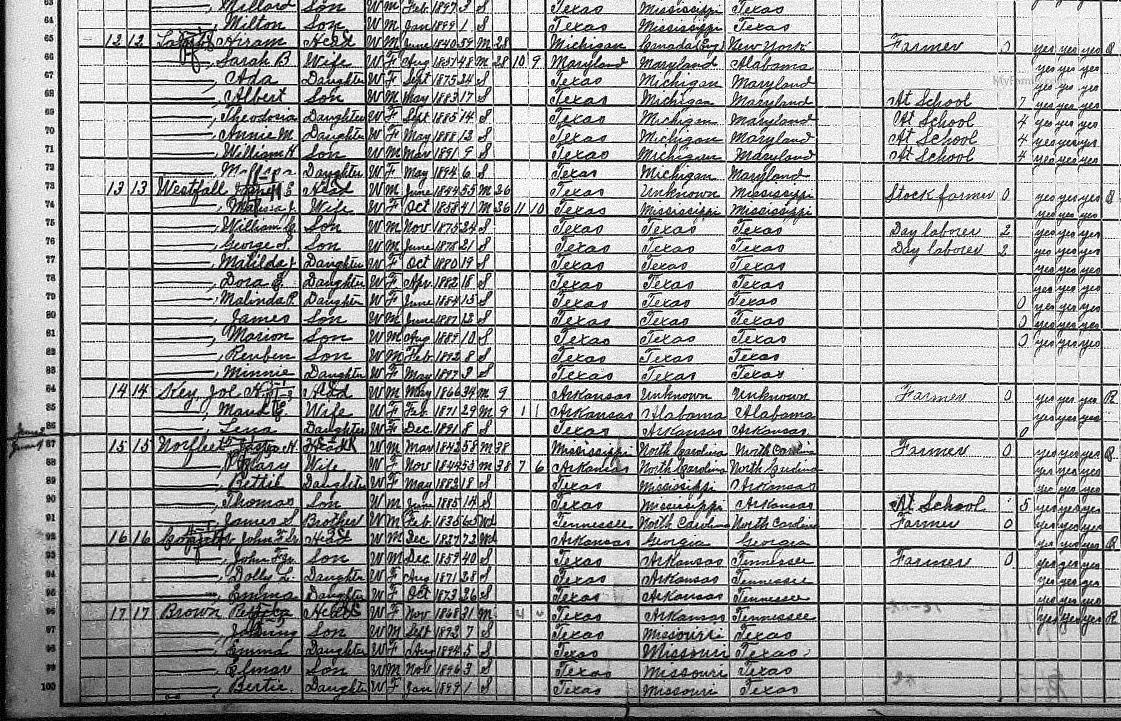 63 Millard Son W M Feb 1897 3 S Texas Mississippi Texas
64 Milton Son W M Jan 1899 1 S Texas Mississippi Texas
65 12 12 Hiram Head W M June 1840 59 M 28 Michigan New York Farmer 0 yes yes yes
66 Sarah B Wife W F Aug 1851 48 M 28 10 9 Maryland Maryland Alabama yes yes yes
67 Ada Daughter W F Sept 1875 24 S Texas Michigan Maryland yes yes yes
68 Albert Son W M May 1883 17 S Texas Michigan Maryland At School 7 yes yes yes
69 Theodosia Daughter W F Sept 1885 14 S Texas Michigan Maryland At School 4 yes yes yes
70 Annie M. Daughter W F May 1888 12 S Texas Michigan Maryland At School 4 yes yes yes
71 William H Son W M Mar 1891 9 S Texas Michigan Maryland At School 4 yes yes yes
72 Daughter W F May 1894 6 S Texas Michigan Maryland
73 13 13 Westfall Head W M June 1844 55 M 26 Texas Unknown Mississippi Stock farmer 0 yes yes yes
74 Wife W F Oct 1858 41 M 26 11 10 Texas Mississippi Mississippi yes yes yes
75 William Son W M Nov 1875 24 S Texas Texas Texas Day laborer 2 yes yes yes
76 George S. Son W M June 1878 21 S Texas Texas Texas Day laborer 2 yes yes yes
77 Matilda J Daughter W F Oct 1880 19 S Texas Texas Texas yes yes yes
78 Dora E. Daughter W F Apr 1882 18 S Texas Texas Texas yes yes yes
79 Malinda P. Daughter W F June 1884 15 S Texas Texas Texas 0 yes yes yes
80 James Son W M June 1887 12 S Texas Texas Texas 0 yes yes yes
81 Marion Son W M Aug 1889 10 S Texas Texas Texas 0 yes yes yes
82 Reuben Son W M Feb 1892 8 S Texas Texas Texas
83 Minnie Daughter W F May 1897 3 S Texas Texas Texas
84 14 14 Key, Joe H. Head W M May 1866 34 M 9 Arkansas Unknown Unknown Farmer 0 yes yes yes R
85 Maud E. Wife W F Feb 1871 29 M 9 1 1 Arkansas Alabama Alabama yes yes yes
86 Lena Daughter W F Dec 1891 8 S Texas Arkansas Arkansas 0
87 15 15 Norfleet H. Head W M Mar 1842 58 M 38 Mississippi North Carolina North Carolina Farmer 0 yes yes yes R
88 Mary Wife W F Nov 1844 55 M 38 7 6 Arkansas North Carolina North Carolina yes yes yes
89 Bettie Daughter W F May 1882 18 S Texas Mississippi Arkansas yes yes yes
90 Thomas Son W M June 1885 14 S Texas Mississippi Arkansas At School 5 yes yes yes
91 James S. Brother W M Feb 1835 65 Wd Tennessee North Carolina North Carolina Farmer 0 yes yes yes
92 16 16 John F. Sr Head W M Dec 1827 72 Wd Arkansas Georgia Georgia yes yes yes R
93 John F Jr. Son W M Dec 1859 40 S Texas Arkansas Tennessee Farmer 0 yes yes yes
94 Dolly L. Daughter W F Aug 1871 28 S Texas Arkansas Tennessee yes yes yes
95 Emma Daughter W F Oct 1873 26 S Texas Arkansas Tennessee yes yes yes
96 17 17 Brown Head W F Nov 1868 31 M 4 4 Texas Arkansas Tennessee yes yes yes R
97 Son W M Sept 1892 7 S Texas Missouri Texas
98 Emma Daughter W F Aug 1894 5 S Texas Missouri Texas
99 Elmer Son W M Nov 1896 3 S Texas Missouri Texas
100 Bertie Daughter W F Jan 1899 1 S Texas Missouri Texas